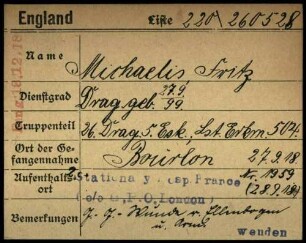 England Liste 220/260528
Eing. 18.12.18
Name Michaelis Fritz
Dienstgrad Drag. geb. 27.9. 99
Truppenteil 26. Drag. 5. Esk. Lst. 5/4.
Ort der Gefangennahme Bourlon 27.9.18
Aufenthaltsort Stationary Hosp. France Nr. 1959
c/o G.P.O. London) (28.9.18)
Bemerkungen J.-G.-Wunde v. Ellenbogen
u. Arm
wenden